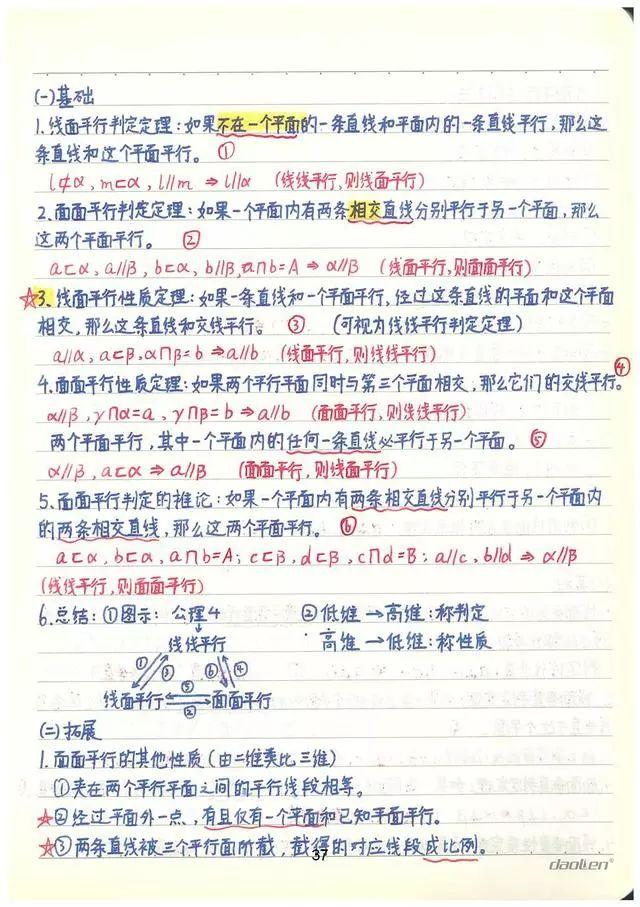 (一)基础
1.线面平行判定定理:如果不在一个平面的一条直线和平面内的一条直线平行,那么这
条直线和这个平面平行。 ①
l⊄α, m⊂α, l∥m ⇒ l∥α (线线平行,则线面平行)
2.面面平行判定定理:如果一个平面内有两条相交直线分别平行于另一个平面,那么
这两个平面平行。 ②
a⊂α, a∥β, b⊂α, b∥β, a∩b=A ⇒ α∥β (线面平行,则面面平行)
☆3.线面平行性质定理:如果一条直线和一个平面平行,经过这条直线的平面和这个平面
相交,那么这条直线和交线平行。 ③ (可视为线线平行判定定理)
a∥α, a⊂β, α∩β=b ⇒ a∥b (线面平行,则线线平行)
4.面面平行性质定理:如果两个平行平面同时与第三个平面相交,那么它们的交线平行。④
α∥β, γ∩α=a, γ∩β=b ⇒ a∥b (面面平行,则线线平行)
两个平面平行,其中一个平面内的任何一条直线必平行于另一个平面。 ⑤
α∥β, a⊂α ⇒ a∥β (面面平行,则线面平行)
5.面面平行判定的推论:如果一个平面内有两条相交直线分别平行于另一个平面内
的两条相交直线,那么这两个平面平行。 ⑥
a⊂α, b⊂α, a∩b=A; c⊂β, d⊂β, c∩d=B; a∥c, b∥d ⇒ α∥β
(线线平行,则面面平行)
6.总结:①图示: 公理4 ②低维→高维:称判定
线线平行 高维→低维:称性质
① ③ ⑥ ④
线面平行 ⑤ ② 面面平行
(二)拓展
1.面面平行的其他性质(由二维类比三维)
①夹在两个平行平面之间的平行线段相等。
★②经过平面外一点,有且仅有一个平面和已知平面平行。
★③两条直线被三个平行面所截,截得的对应线段成比例。
37
daolen